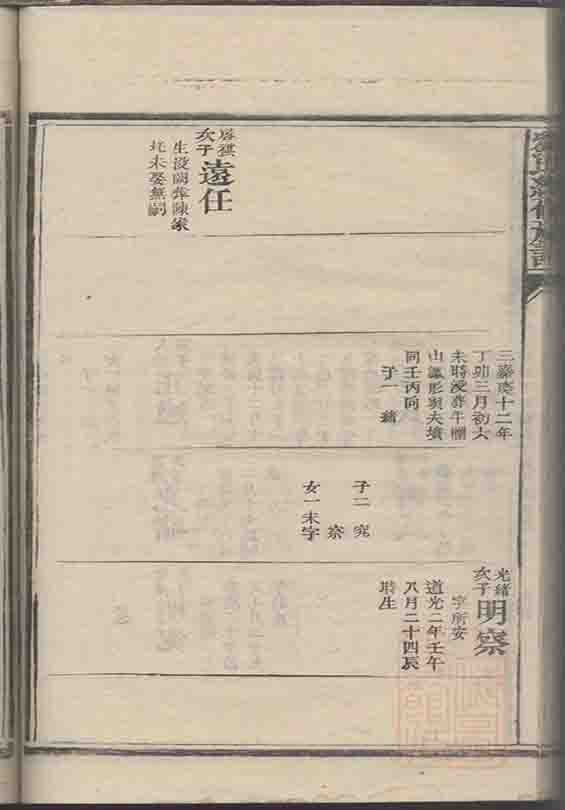 啓祺
次子
遠任
生没闕葬陳家
圫未娶無嗣
三嘉慶十二年
丁卯三月初六
未時没葬牛欄
山 形 夫墳
同壬丙向
子一 緒
子二 究
察
女一未字
光緒
次子
明察
字所安
道光二年壬午
八月二十四辰
時生